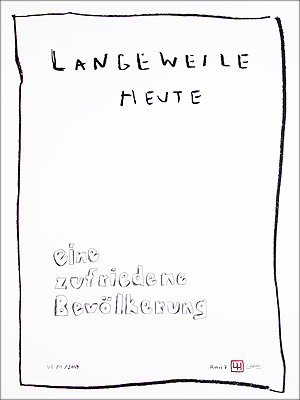 LANGEWEILE
HEUTE
eine
zufriedene
Bevölkerung